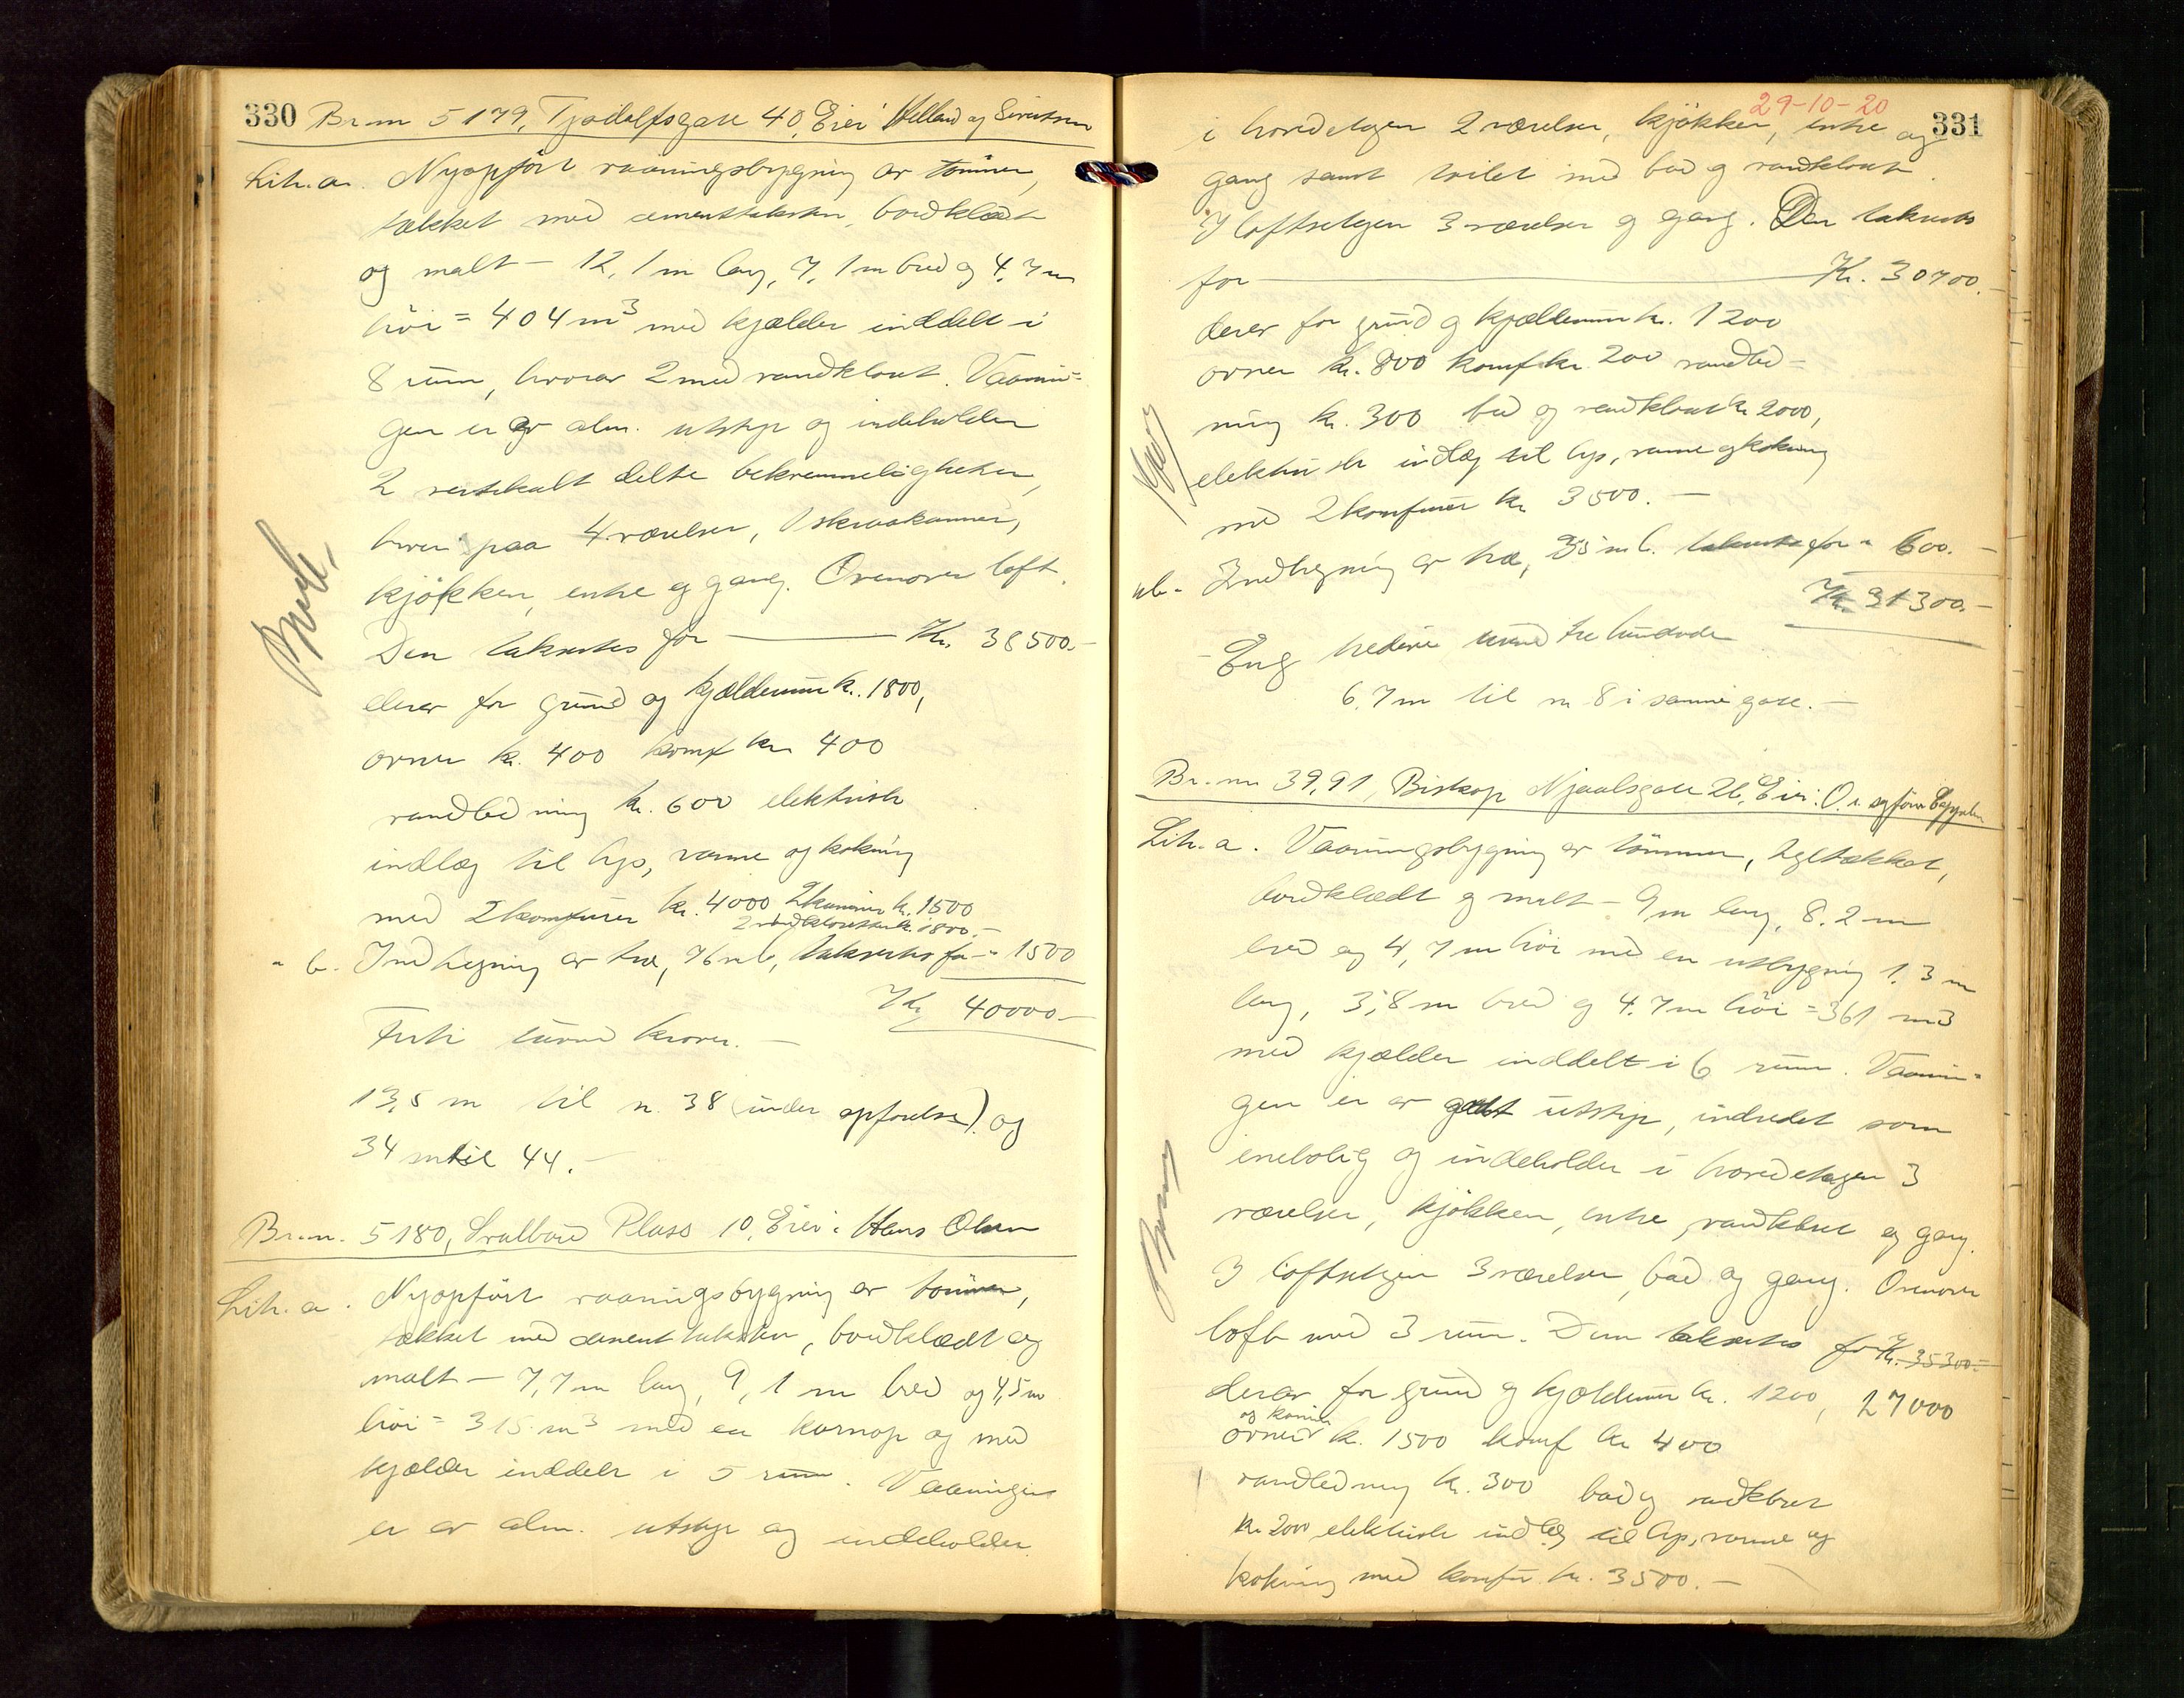 330 Br.nr 5179, Tjodolfsgate 40, Eier: Helland og Sivertsen
Lit. a. Nyopført vaaningsbygning av tømmer,
tækket med cementtaksten, bordklædt
og malt – 12,1 m lang, 7,1 m bred og 4,7 m
høi = 404 m³ med kjælder inddelt i
8 rum, hvorav 2 med vandklosett. Vaanin-
gen er av alm. utstyr og indeholder
2 vertikalt delte bekvemmeligheter,
hver paa 4 værelser, 1 skraakammer,
kjøkken, entre og gang. Ovenover loft.
Den taksertes for Kr. 38500.-
derav for grund og kjælderrum kr. 1800,
ovner kr. 400 komf kr 400
vandledning kr. 600 elektrisk
indlæg til lys, varme og kokning
med 2 komfurer kr. 4000 2 kaminer kr. 1500
2 vandklosetter kr. 1800.-
" b. Indhegning av træ, 76 m l, taksertes for " 1500
Kr 40000-
Firti tusend kroner. –
13,5 m til nr. 38 (under opførelse) og
34 m til 44. –
Br.nr. 5180, Svalbard Plass 10, Eier: Hans Olsen
Lit. a. Nyopført vaaningsbygning av tømmer,
tækket med cementtaksten, bordklædt og
malt – 7,7 m lang, 9,1 m bred og 4,5 m
høi = 315 m³ med en karnap og med
kjælder inddelt i 5 rum. Vaaningen
er av alm. utstyr og indeholder
29-10-20
331
i hovedetagen 2 værelser, kjøkken, entre og
gang samt toilet med bad og vandklosett.
I loftsetagen 3 værelser og gang. Den taksertes
for Kr. 30700.-
derav for grund og kjælderrum kr. 1200
ovner kr. 800 komf kr. 200 vandled-
ning kr. 300 bad og vandklosett kr 2000,
elektrisk indlæg til lys, varme og kokning
med 2 komfurer kr 3500. –
" b. Indhegning av træ, 35 m l. taksertes for " 600. –
Kr. 31300.-
- Eng tredivé tusend tre hundrede
6,7 m til nr 8 i samme gate. –
Br.nr 3991, Biskop Njaalsgate 26, Eier: O.r.sagfører Eppeln
Lit. a. Vaaningsbygning av tømmer, tegltækket,
bordklædt og malt – 9 m lang, 8.2 m
bred og 4,7 m høi med en utbygning 1.3 m
lang, 3,8 m bred og 4.7 m høi = 361 m3
med kjælder inddelt i 6 rum. Vaanin-
gen er av godt utstyr, indredet som
enebolig og indeholder i hovedetagen 3
værelser, kjøkken, entre, vandklosett og gang.
I loftsetagen 3 værelser, bad og gang. Ovenover
loft med 3 rum. Den taksertes for Kr. 35300.-
derav for grund og kjælderrum kr. 1200, 27000
og kamin
ovner kr. 1500 komf kr 400
vandledning kr. 300 bad og vandklosett
kr. 2000 elektrisk indlæg til lys, varme og
kokning med komfur kr. 3500. –